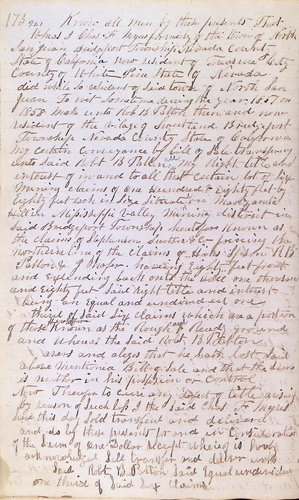 Know all men by these presents that
Whereas I Chas F formerly of the town of North
San Juan Bridgeport Township Nevada County
State of California now resident of Treasure City
County of White Pine State of Nevada
did while so resident of said town of North San
Juan To wit sometime during the year 1857 or
1858 make unto Rob B Patton then and now
resident of the village of Sweetland Bridgeport
Township Nevada County State of California
My certain conveyance by bill of sale transferring
unto said Robt B Patton all My right title and
interest of in and to all that certain lot of six
Mining claims of one hundred & Eighty feet by
Eighty feet each in size Situation
Hill in Mississippi Valley Mining district in
said Bridgeport Township heretofore known as
the claims of Stephenson & Co joining the
Northern line of the claims of
having Eighty feet front
and extending back one of the sides one thousand
and eighty feet Said right title and interest
being an equal and undivided one
third of said six claims which are a portion
of those known as the Rough and Ready ground
and Whereas the said Robt B Patton
avers and aleges that he hath lost said
above mentioned Bill of Sale and that the same
is neither in his possession or control
Now Therefore to cure any defect of title arising
by reason of such loss I the said Chas F
have this day Sold transfered and delivered
and do by these presents for and in Consideration
of the Sum of one Dollar receipt whereof is hereby
acknowledged Sell transfer and deliver unto
Said Robt B Patton Said Equal undivided
one third of Said Six Claims